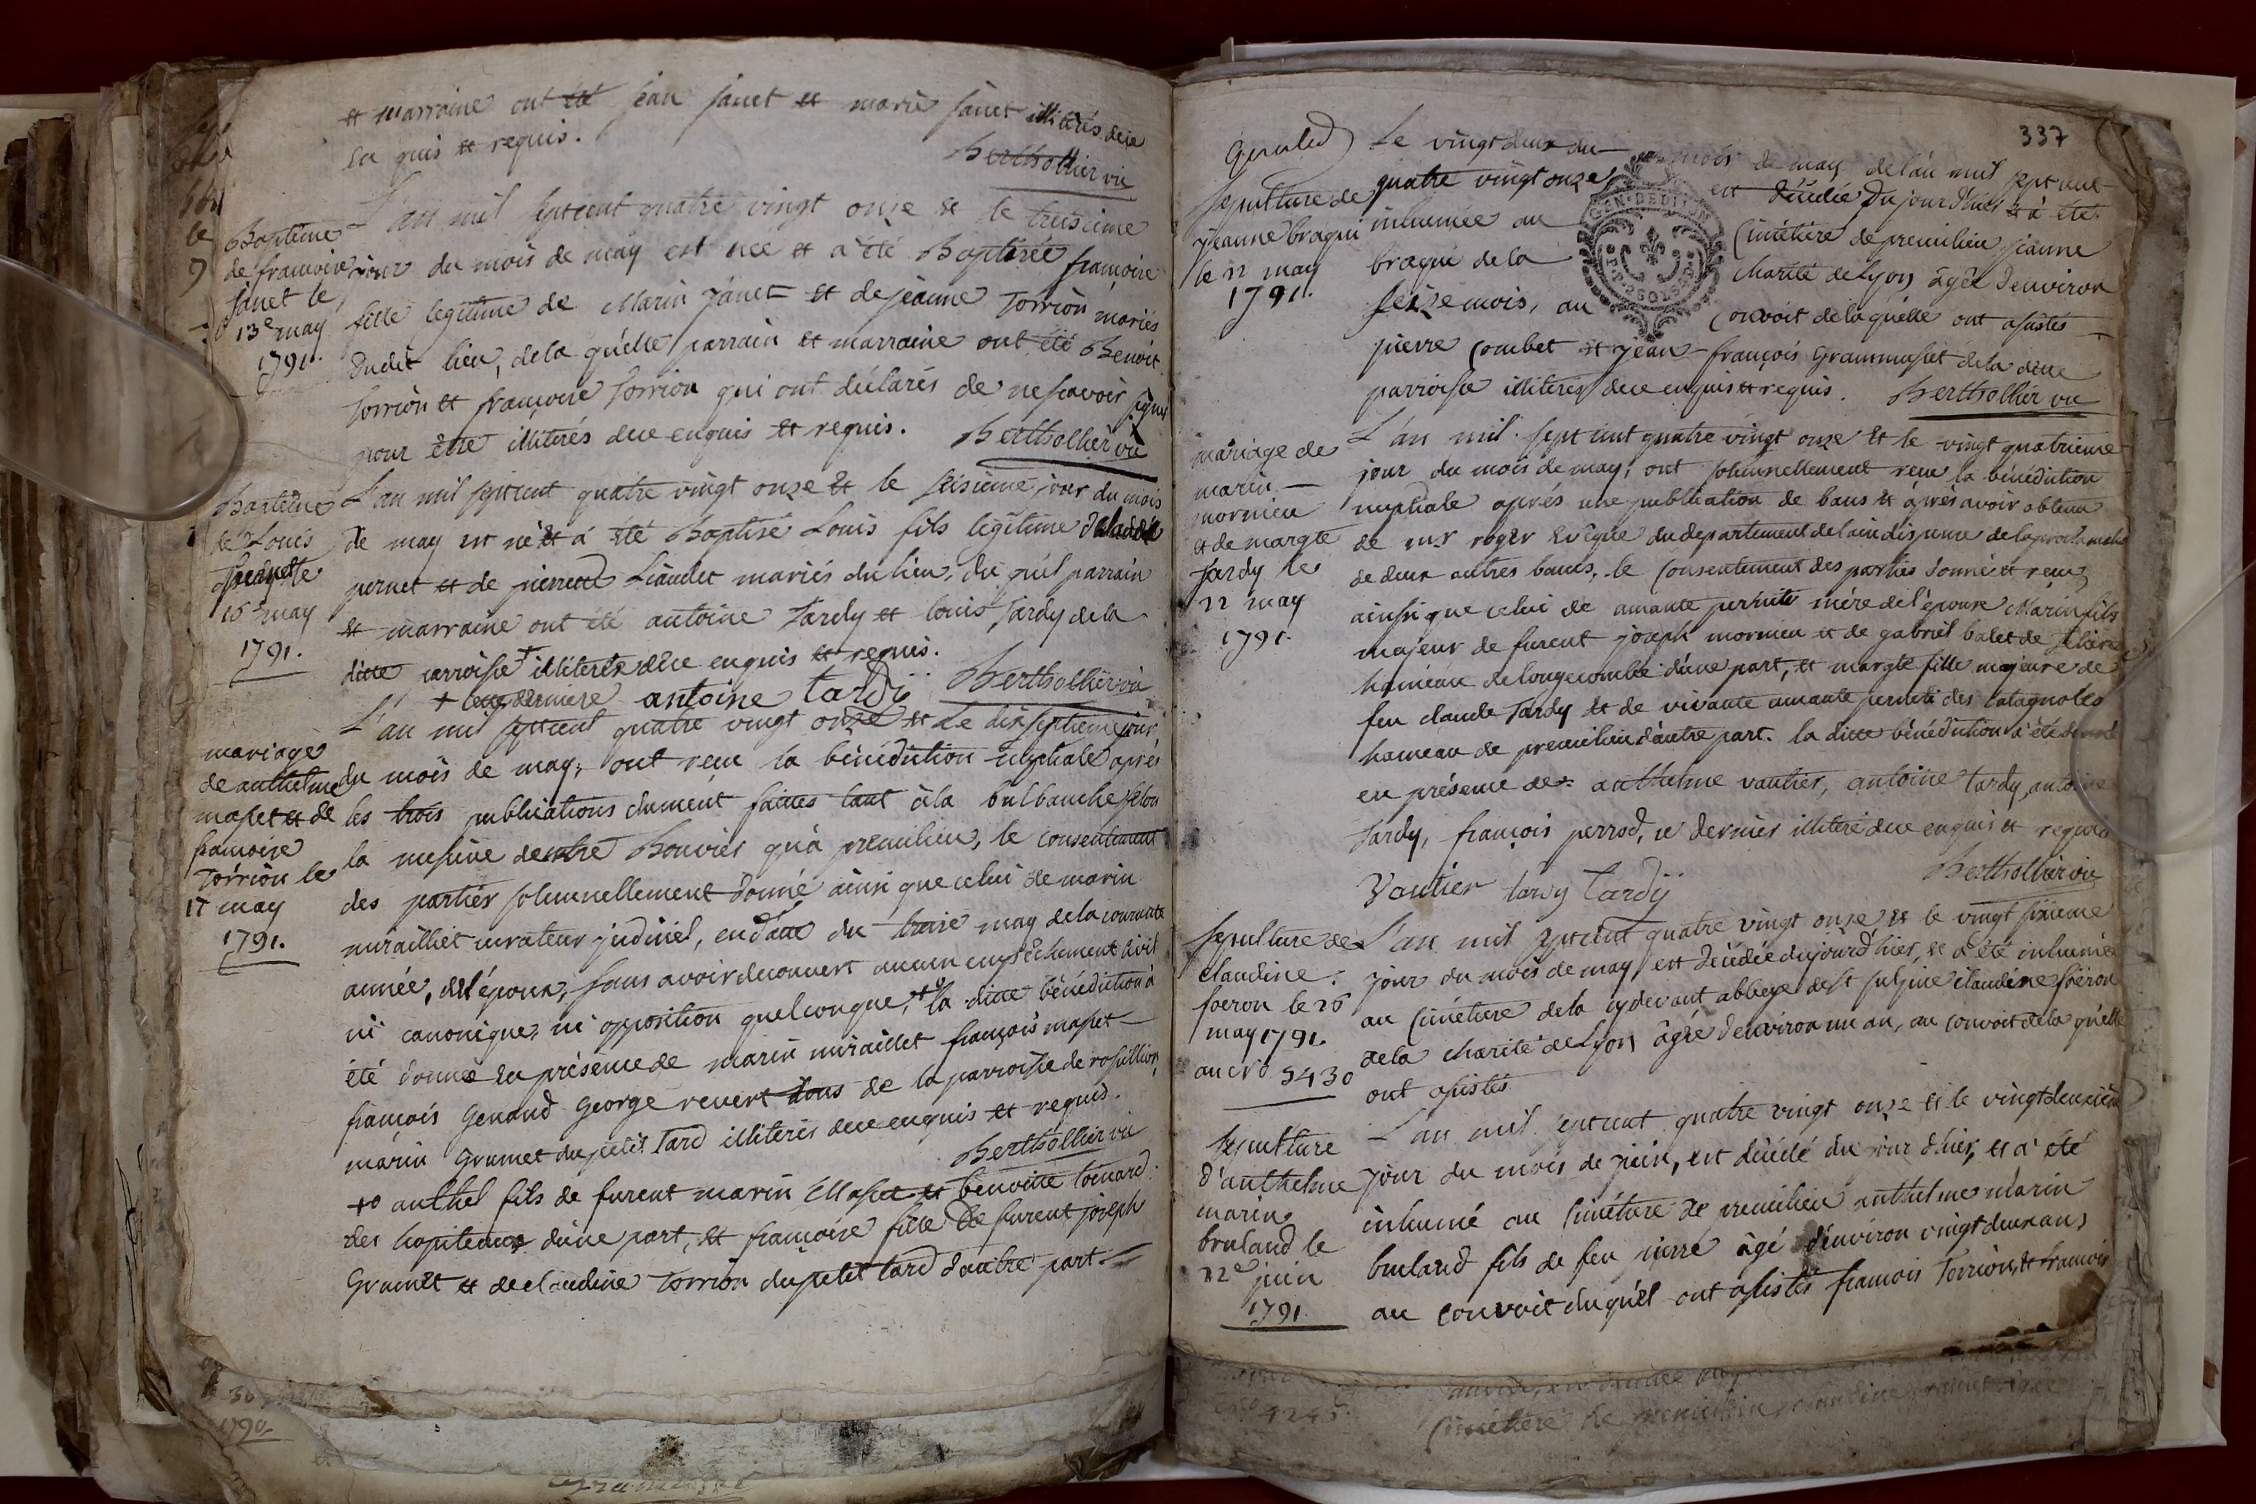 et marraine ont été jean janet et marie janet illiterés de ce
en quis et requis.
Berthollier vic
Baptême
de francoise
janet le
13e may
1791.
L'an mil sept cent quatre vingt onze et le treisième
jour du mois de may est née et a été Baptisée francoise
fille legitime de Marin janet et de jeanne Torrion mariés
dudit lieu, de la quélle parrain et marraine ont été Benoit
Torrion et francoise Torrion qui ont déclarés de ne scavoir signer
pour être illiterés de ce enquis et requis. Berthollier vic
Baptême
de Louis
pernet le
16e may
1791.
L'an mil sept cent quatre vingt onze et le seisieme jour du mois
de may est né et a été Baptisé Louis fils légitime de
pernet et de pierrette Liaudet mariés du lieu, du quél parrain
et marraine ont été antoine Tardy et louis Tardy de la
ditte parroisse + illiterée de ce enquis et requis.
+ cette derniere antoine tardij Berthollier vic
mariage
de anthelme
masset et de
francoise
Torrion le
17 may
1791.
L'an mil sept cent quatre vingt onze et Le dix septieme jour
du mois de may, ont reçu la bénédiction nuptiale après
les trois publications dument faittes tant à la bulbanche selon
la missive de Bouvier qu'à premilieu, le consentement
des parties solemnellement donné ainsi que celui de marin
miraillet curateur judiciel, en date du treise may de la courante
année, de l'époux, sans avoir decouvert aucun empêchement civil
ni canonique, ni opposition quelconque, +o la ditte bénédiction a
été donnée en présence de marin miraillet françois masset
françois Genand George revert tous de la parroisse de rossillion,
marin Grumet du petit Tard illiterés de ce enquis et requis.
Berthollier vic
+o anthel fils de furent marin Masset et benoitte tomard
des hopiteaux d'une part, et françoise fille de furent joseph
Grumet et de claudine Torrion du petit tard d'autre part.
337
Sepulture de
jeanne braqui
le 22 may
1791.
Le vingt deux du mois de may de l'an mil sept cent
quatre vingt onze, est décédée du jour d'hier et a été
inhumée au Cimétiére de premilieu jeanne
GEN. DE DIJON
braqui de la charité de Lyon âgée d'environ
seize mois, au convoit de la quélle ont assistés
pierre Combet et jean-françois Grammusset de la ditte
parroisse illiterés de ce enquis et requis. Berthollier vic
mariage de
marin
mornieu
et de margte
Tardy le
22 may
1791.
L'an mil sept cent quatre vingt onze et le vingt quatrieme
jour du mois de may, ont solemnellement recu la bénédiction
nuptiale aprés une publication de bans et aprés avoir obtenu
de mr roger Evêque du departement de l'ain dispense de la proclamation
de deux autres bancs, le Consentement des parties donné et reçu
ainsi que celui de amante pernete mére de l'épouse Marin fils
majeur de furent joseph mornieu et de gabriel balet de
haméau de longecombe d'une part, et margte fille majeure de
feu claude Tardy et de vivante amante des Catagnoles
hameau de premilieu d'autre part. la ditte bénédiction a été donné
en présence de anthelme vautier, antoine tardy, antoine
Tardy, françois perrod, ce dernier illiteré de ce enquis et requis
Berthollier vic
Vautier tardy tardij
Sepulture de
claudine
foeron le 26
may 1791.
au cro 5430
L'an mil sept cent quatre vingt onze et le vingt sixieme
jour du mois de may, est décédée du jour d'hier, et a été inhumée
au Cimétiere de la cy devant abbeye de st sulpice claudine foëron
de la charité de Lyon âgée d'environ un an, au convoit de la quélle
ont assistés
Sepulture
d'anthelme
marin
bruland le
22e juin
1791.
L'an mil sept cent quatre vingt onze et le vingt deuxième
jour du mois de juin, est décédé du jour d'hier, et a été
inhumé au Cimétiere de premilieu anthelme marin
bruland fils de feu pierre âgé d'environ vingt deux ans
au convoit duquél ont assistés francois Torrion, et francois
30
1790.
4245.
Cimétiére de premilieu claudine